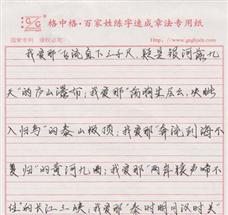 格中格·百家姓练字速成章法专用纸
我爱那“飞流直下三千尺，疑是银河落九
天”的庐山瀑布；我爱那“荡胸生层云，决眦
入归鸟”的泰山极顶；我爱那“奔流到海不
复归”的黄河九曲；我爱那“两岸猿声啼不
住”的长江三峡；我爱那“秦时明月汉时关”